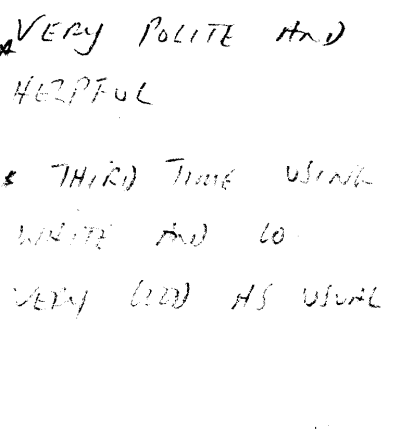 VERY POLITE AND
HELPFUL
THIRD TIME USING
WHITE AND CO
VERY GOOD AS USUAL